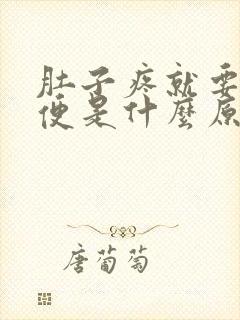 肚子疼就要
便是什麼原
唐葡萄